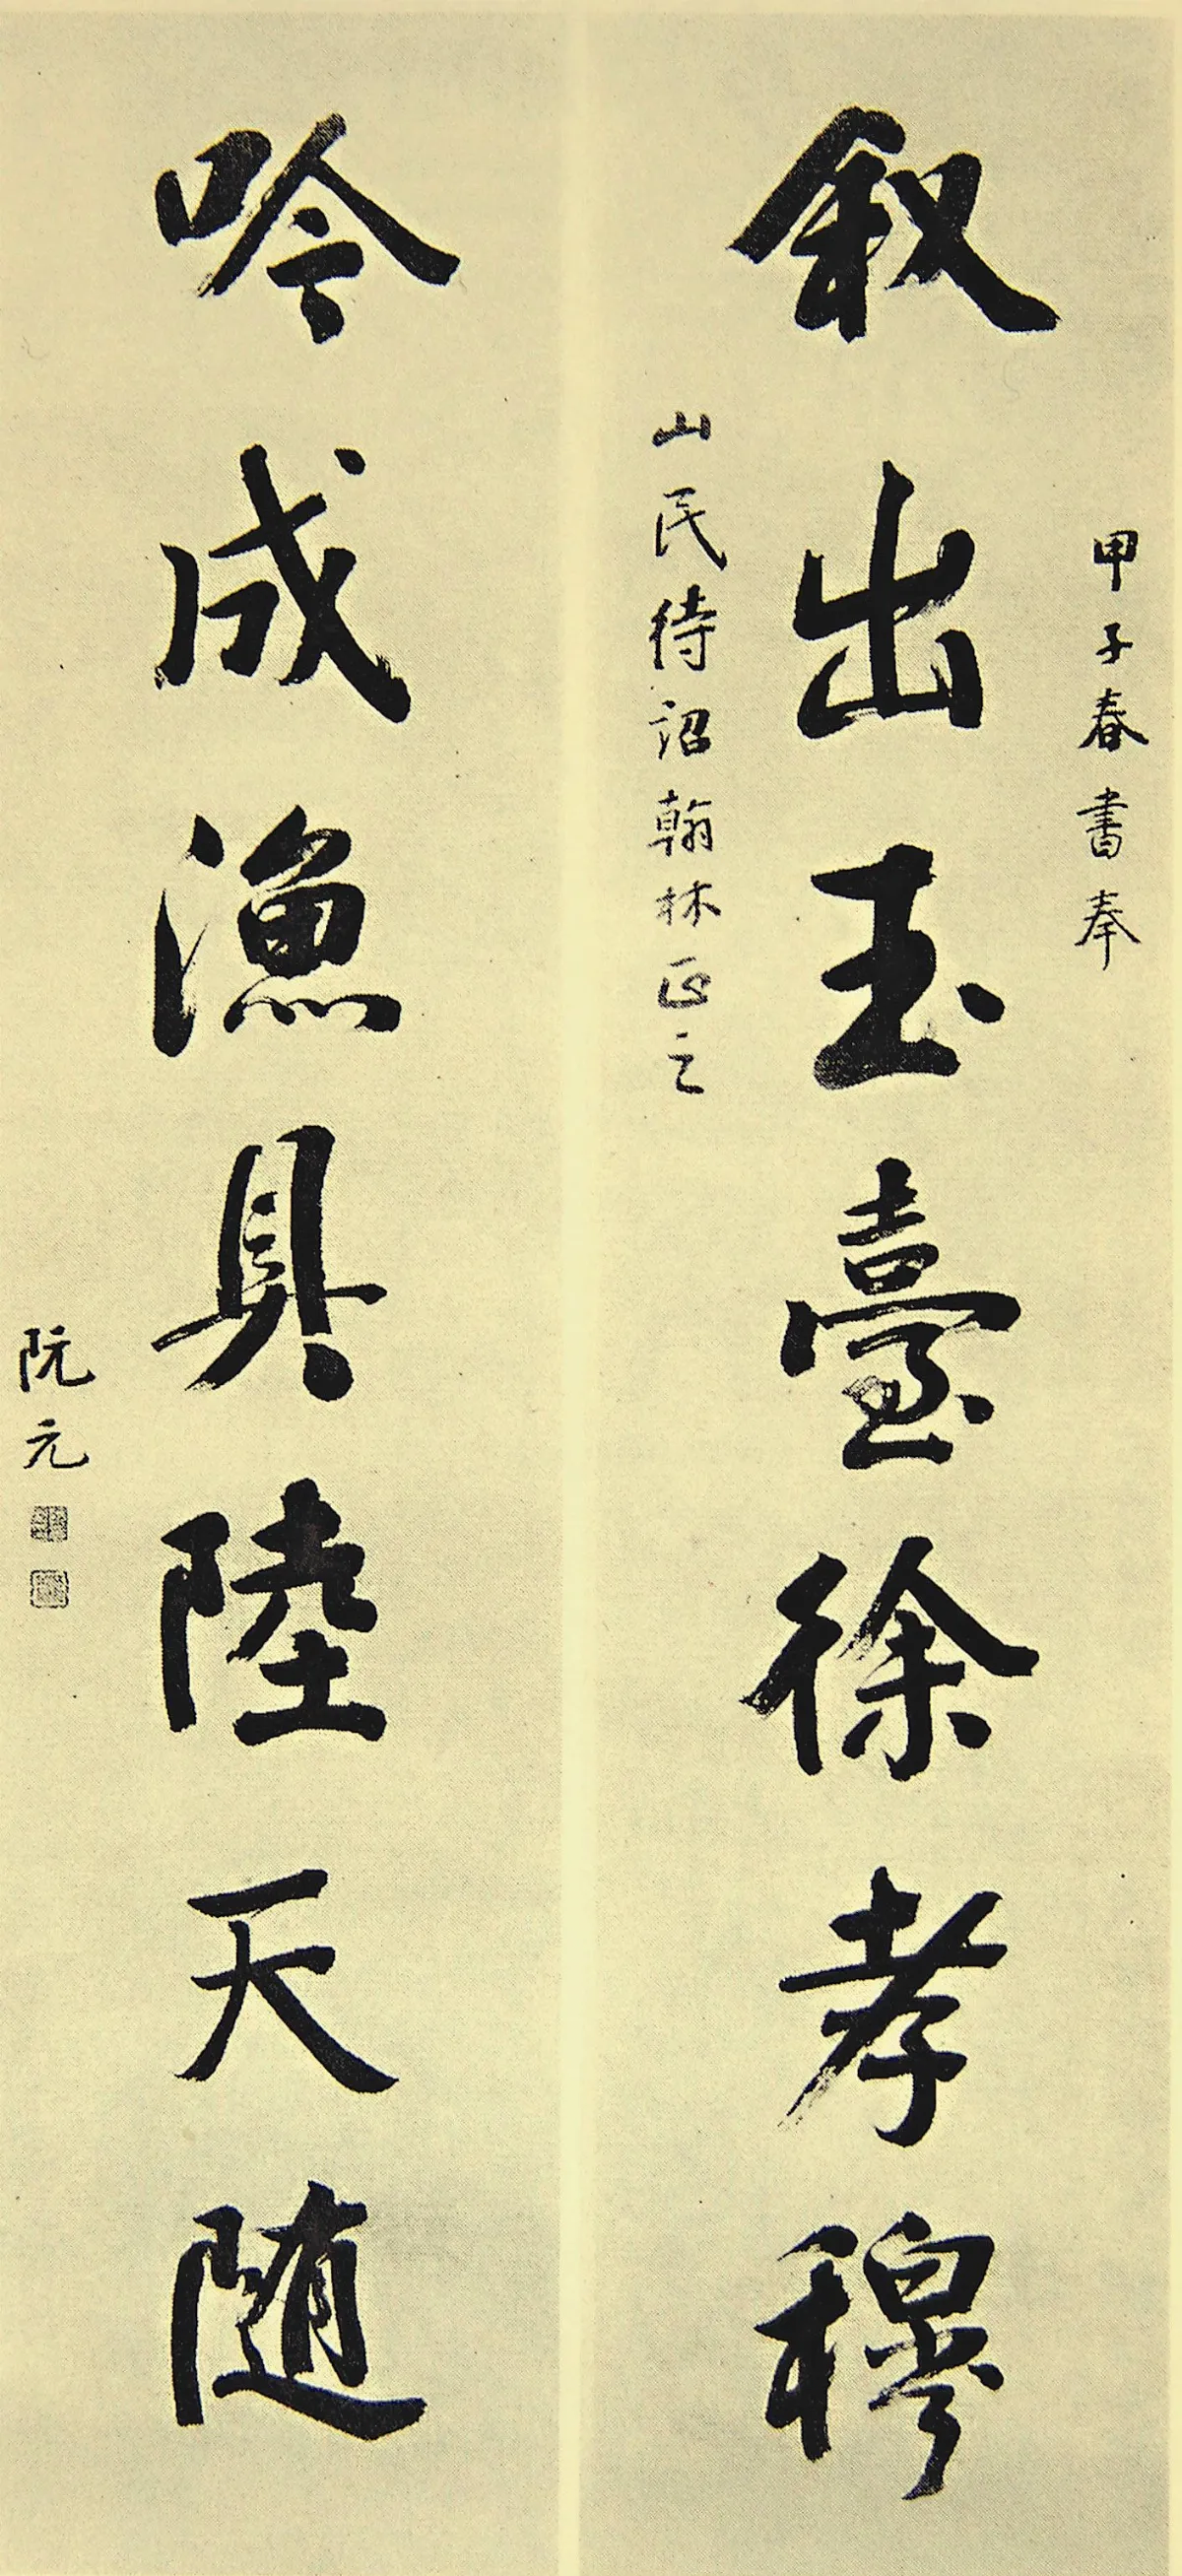 叙出玉臺徐孝穆
甲子春書奉
山民待詔翰林正之
吟成漁具陸天随
阮元